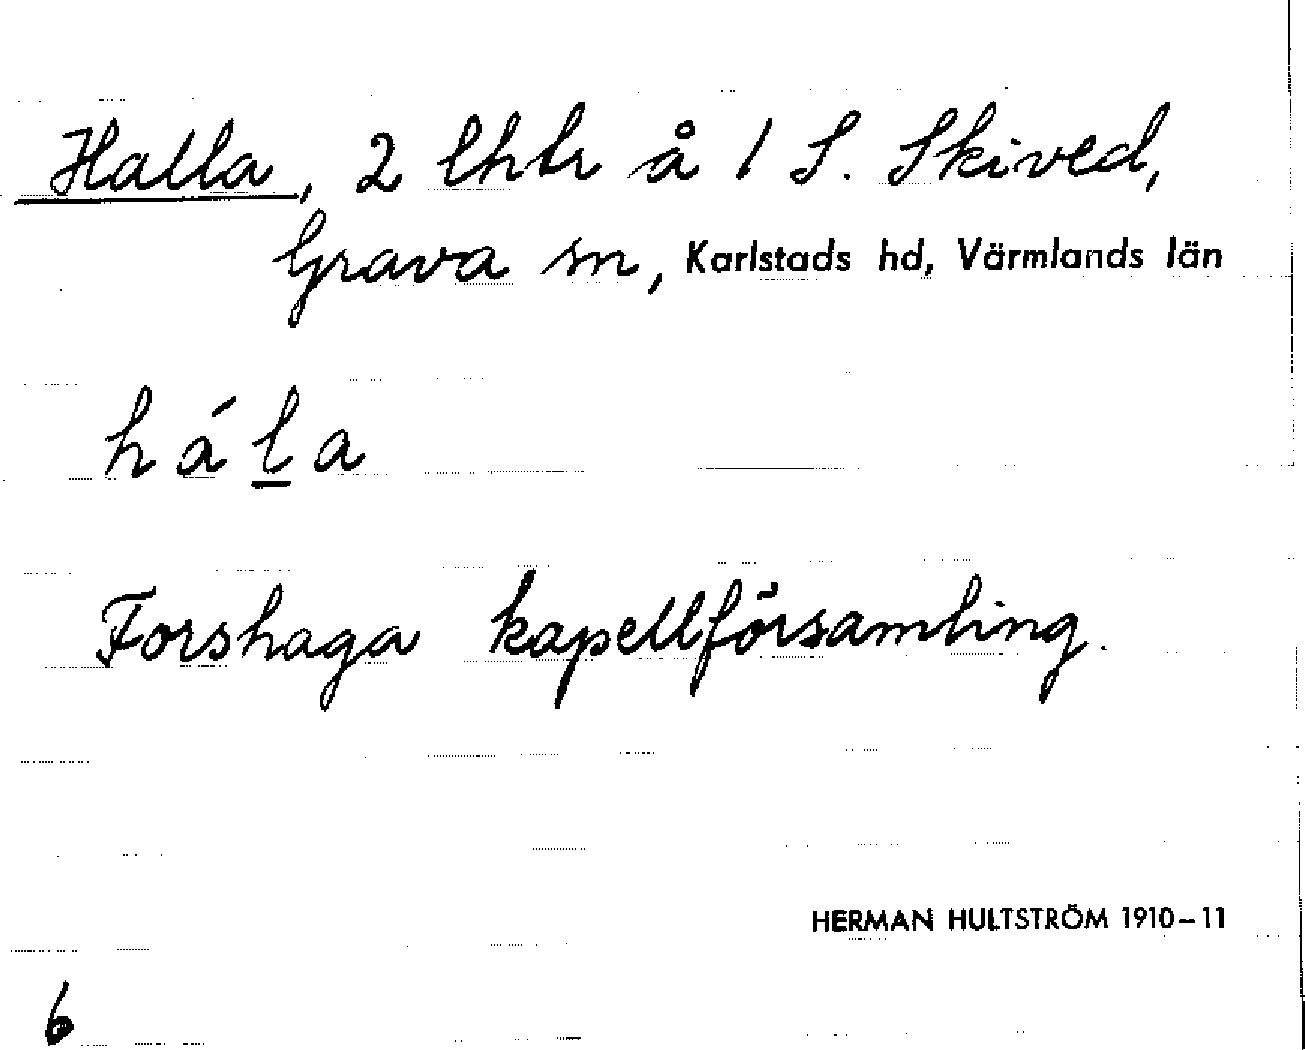 Halla, 2 lhlr å 1 S. Skived,
Grava sn, Karlstads hd, Värmlands län
hála
Forshaga kapellförsamling.
HERMAN HULTSTRÖM 1910-11
6